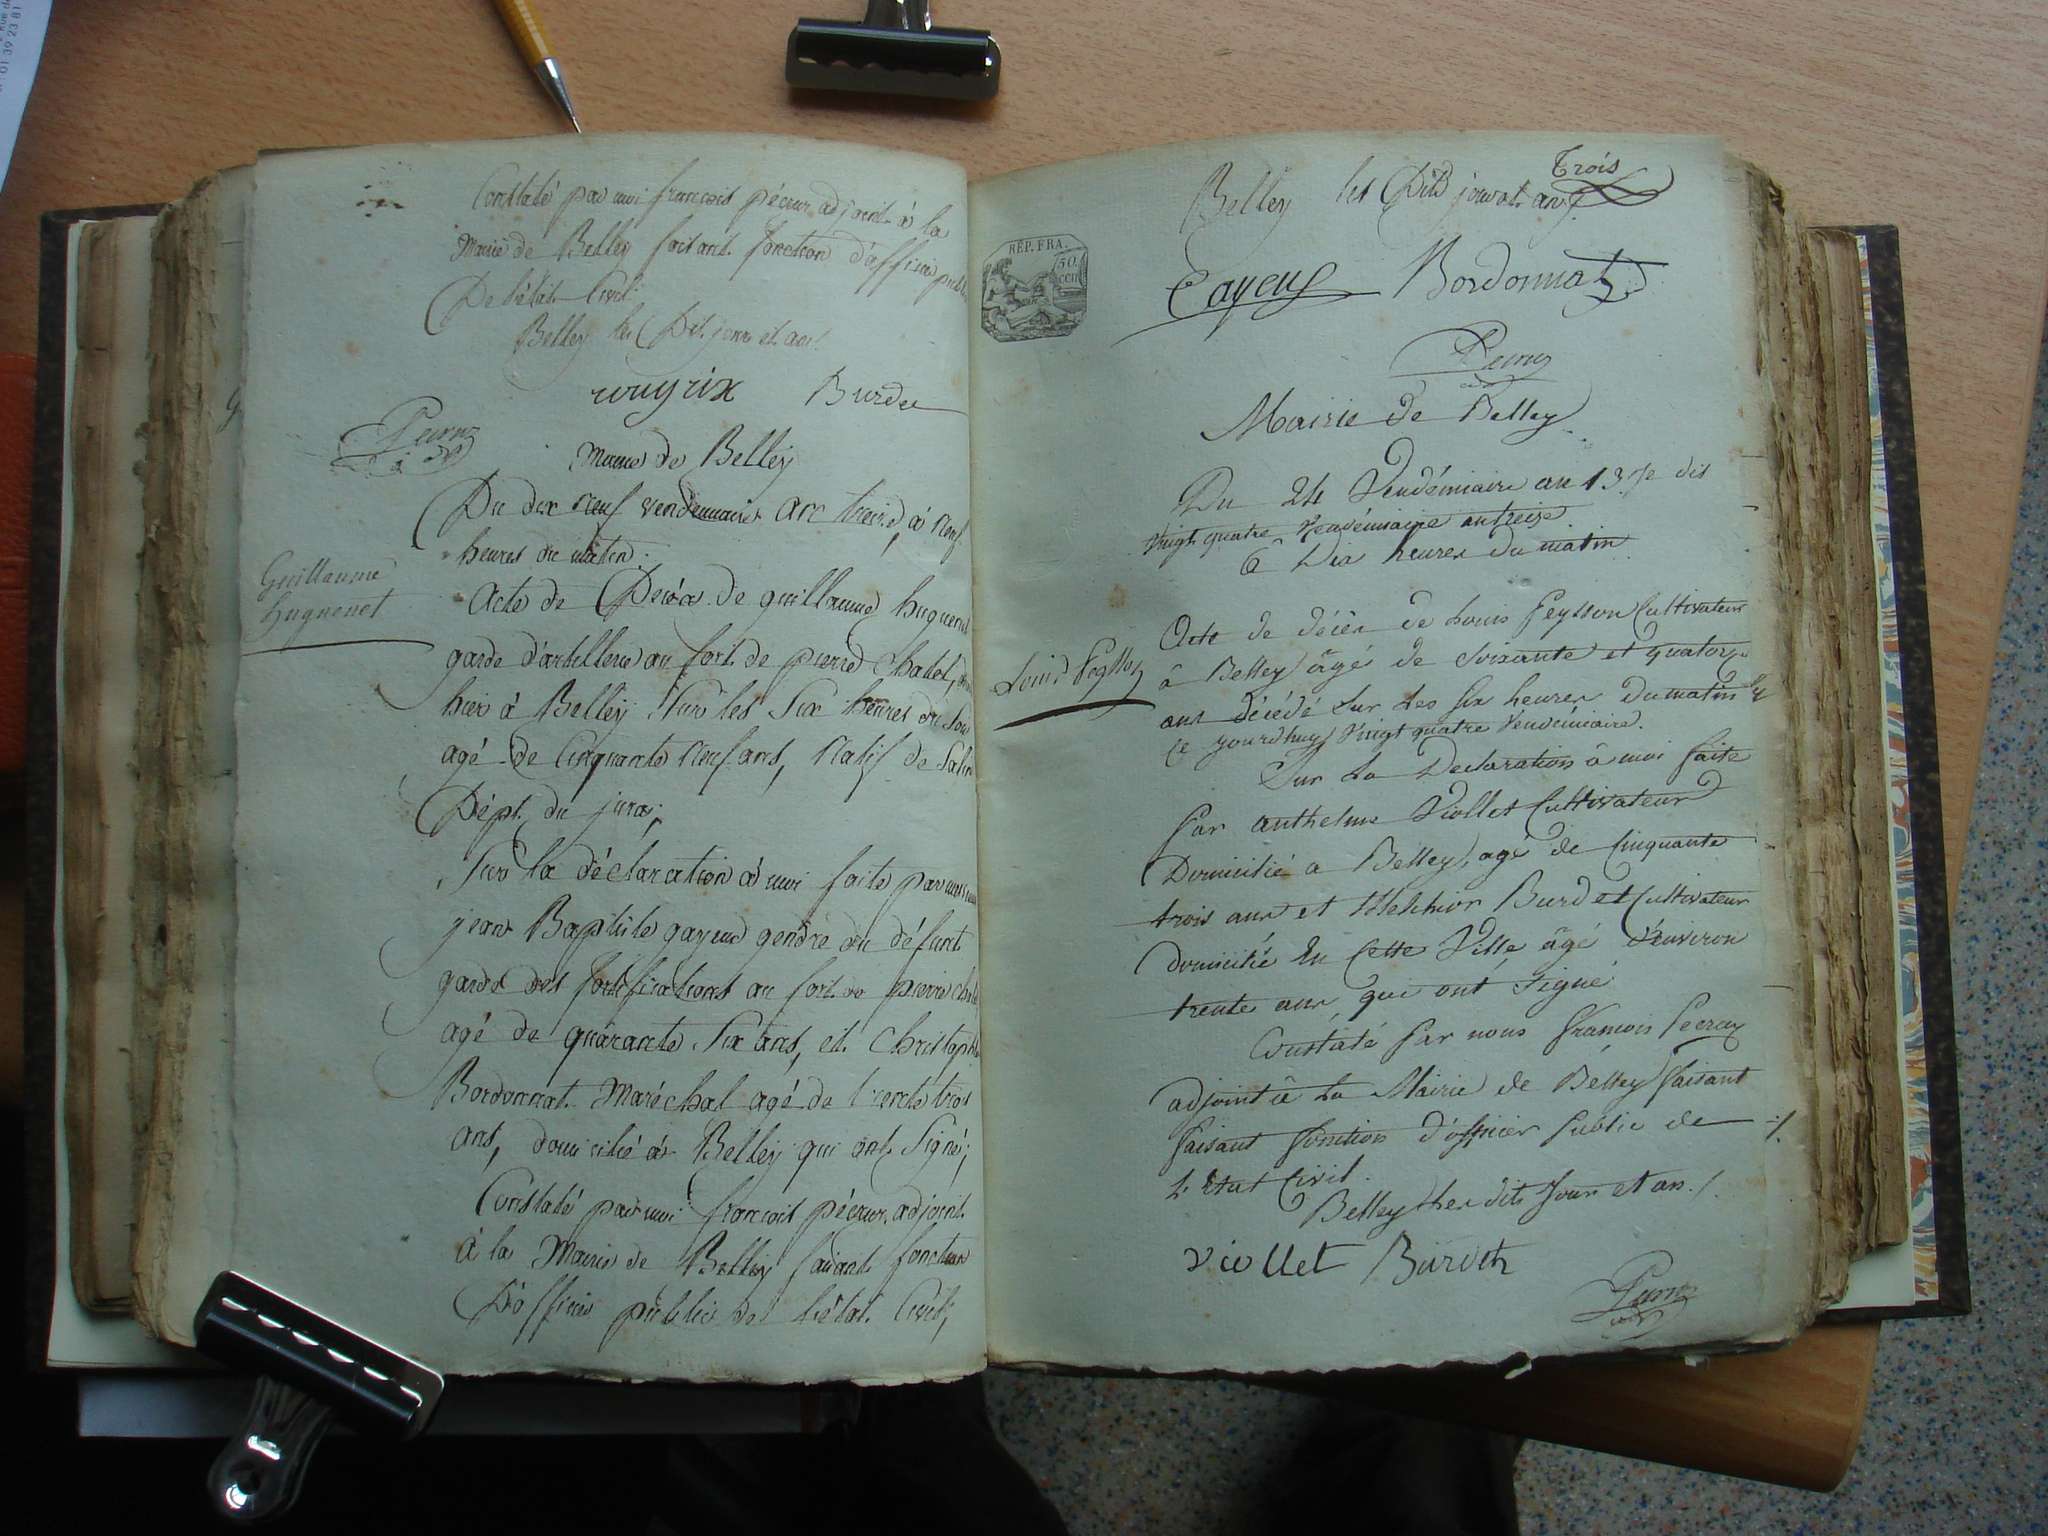 Constaté par moi françois pécrux adjoint à la
Mairie de Belley faisant fonction d'officier public
De l'état Civil.
Belley les Dit jour et an.
Burdet
Mairie de Belley
Du dix neuf vendemiaire an treize, à neuf
heures du matin.
Guillaume
huguenet
Acte de Décès de guillaume huguenet
garde d'artillerie au fort de pierre Chatel,
hier à Belley Sur les Six heures du Soir
agé de Cinquante neuf ans, natif de Salin
Dépt. du jura;
Sur la déclaration à moi faite par
jean Baptiste gayeux gendre du défunt
garde des fortifications au fort de pierre chatel
agé de quarante Six ans, et Christophe
Bordonnat Maréchal agé de trente trois
ans, domicilié à Belley qui ont Signé;
Constaté par moi françois pécrux adjoint
à la Mairie de Belley faisant fonction
D'officier public de l'état Civil,
Trois
Belley les Dits jour et an
RÉP. FRA.
50
cen
Gayeux Bordonnat
Mairie de Belley
Du 24 Vendémiaire an 13 Je dis
Vingt quatre Vendémiaire an treize
à Dix heures du matin
Louis Peysson
Acte de décès de Louis Peysson Cultivateur
à Belley âgé de soixante et quatorze
ans décédé sur les six heures du matin
ce jourdhuy Vingt quatre Vendémiaire.
Sur La Déclaration à moi faite
Par anthelme Viollet Cultivateur
Domicilié a Belley, agé de Cinquante
trois ans et Melchior Burdet Cultivateur
domicilié en Cette Ville âgé d'environ
trente ans, qui ont signé
Constaté par nous François Pécrux
adjoint à La Mairie de Belley faisant
faisant fonction d'officier Public de
L'état Civil.
Belley Les dits Jour et an./.
Viollet Burdet